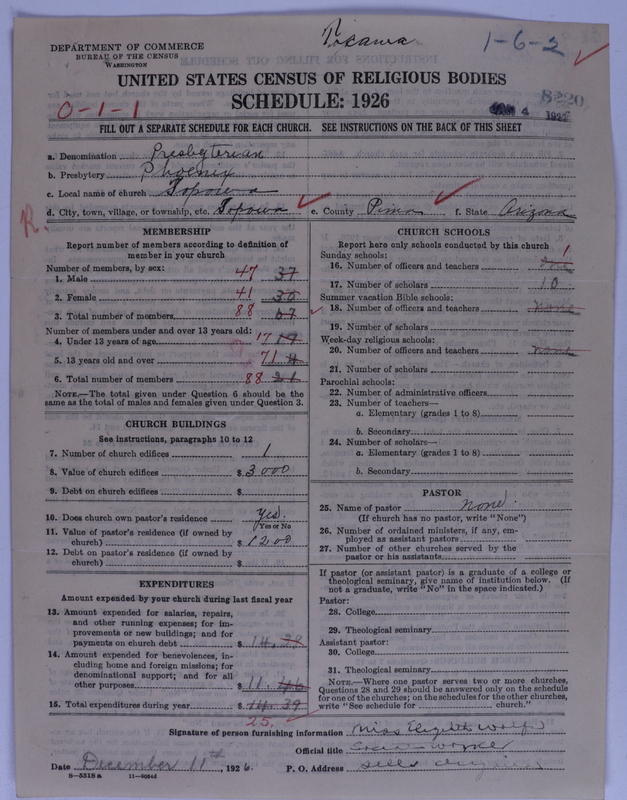 1-6-2
DEPARTMENT OF COMMERCE
BUREAU OF THE CENSUS
WASHINGTON
UNITED STATES CENSUS OF RELIGIOUS BODIES
SCHEDULE: 1926
0-1-1
FILL OUT A SEPARATE SCHEDULE FOR EACH CHURCH. SEE INSTRUCTIONS ON THE BACK OF THIS SHEET
a. Denomination Presbyterian
b. Presbytery Phoenix
c. Local name of church Topowa
d. City, town, village, or township, etc. Topowa e. County Pima f. State Arizona
R
MEMBERSHIP
Report number of members according to definition of member in your church
Number of members, by sex:
1. Male 47 37
2. Female 41 30
3. Total number of members 88 67
Number of members under and over 13 years old:
4. Under 13 years of age 17 17
5. 13 years old and over 71 4
6. Total number of members 88 21
NOTE.—The total given under Question 6 should be the same as the total of males and females given under Question 3.
CHURCH BUILDINGS
See instructions, paragraphs 10 to 12
7. Number of church edifices 1
8. Value of church edifices $ 3000
9. Debt on church edifices $
10. Does church own pastor's residence yes.
Yes or No
11. Value of pastor's residence (if owned by church) $ 1200
12. Debt on pastor's residence (if owned by church) $
EXPENDITURES
Amount expended by your church during last fiscal year
13. Amount expended for salaries, repairs, and other running expenses; for improvements or new buildings; and for payments on church debt $ 14.28
14. Amount expended for benevolences, including home and foreign missions; for denominational support; and for all other purposes $ 11.
15. Total expenditures during year $ 14.39
25.
CHURCH SCHOOLS
Report here only schools conducted by this church
Sunday schools:
16. Number of officers and teachers 1
17. Number of scholars 10
Summer vacation Bible schools:
18. Number of officers and teachers none
19. Number of scholars
Week-day religious schools:
20. Number of officers and teachers none
21. Number of scholars
Parochial schools:
22. Number of administrative officers
23. Number of teachers—
a. Elementary (grades 1 to 8)
b. Secondary
24. Number of scholars—
a. Elementary (grades 1 to 8)
b. Secondary
PASTOR
25. Name of pastor none.
(If church has no pastor, write "None")
26. Number of ordained ministers, if any, employed as assistant pastors
27. Number of other churches served by the pastor or his assistants
If pastor (or assistant pastor) is a graduate of a college or theological seminary, give name of institution below. (If not a graduate, write "No" in the space indicated.)
Pastor:
28. College
29. Theological seminary
Assistant pastor:
30. College
31. Theological seminary
NOTE.—Where one pastor serves two or more churches, Questions 28 and 29 should be answered only on the schedule for one of the churches; on the schedules for the other churches, write "See schedule for church."
Signature of person furnishing information Miss Elizabeth Wolfe
Official title Worker
Date December 11th, 1926. P. O. Address Sells Arizona
8—5318a 11—9064d